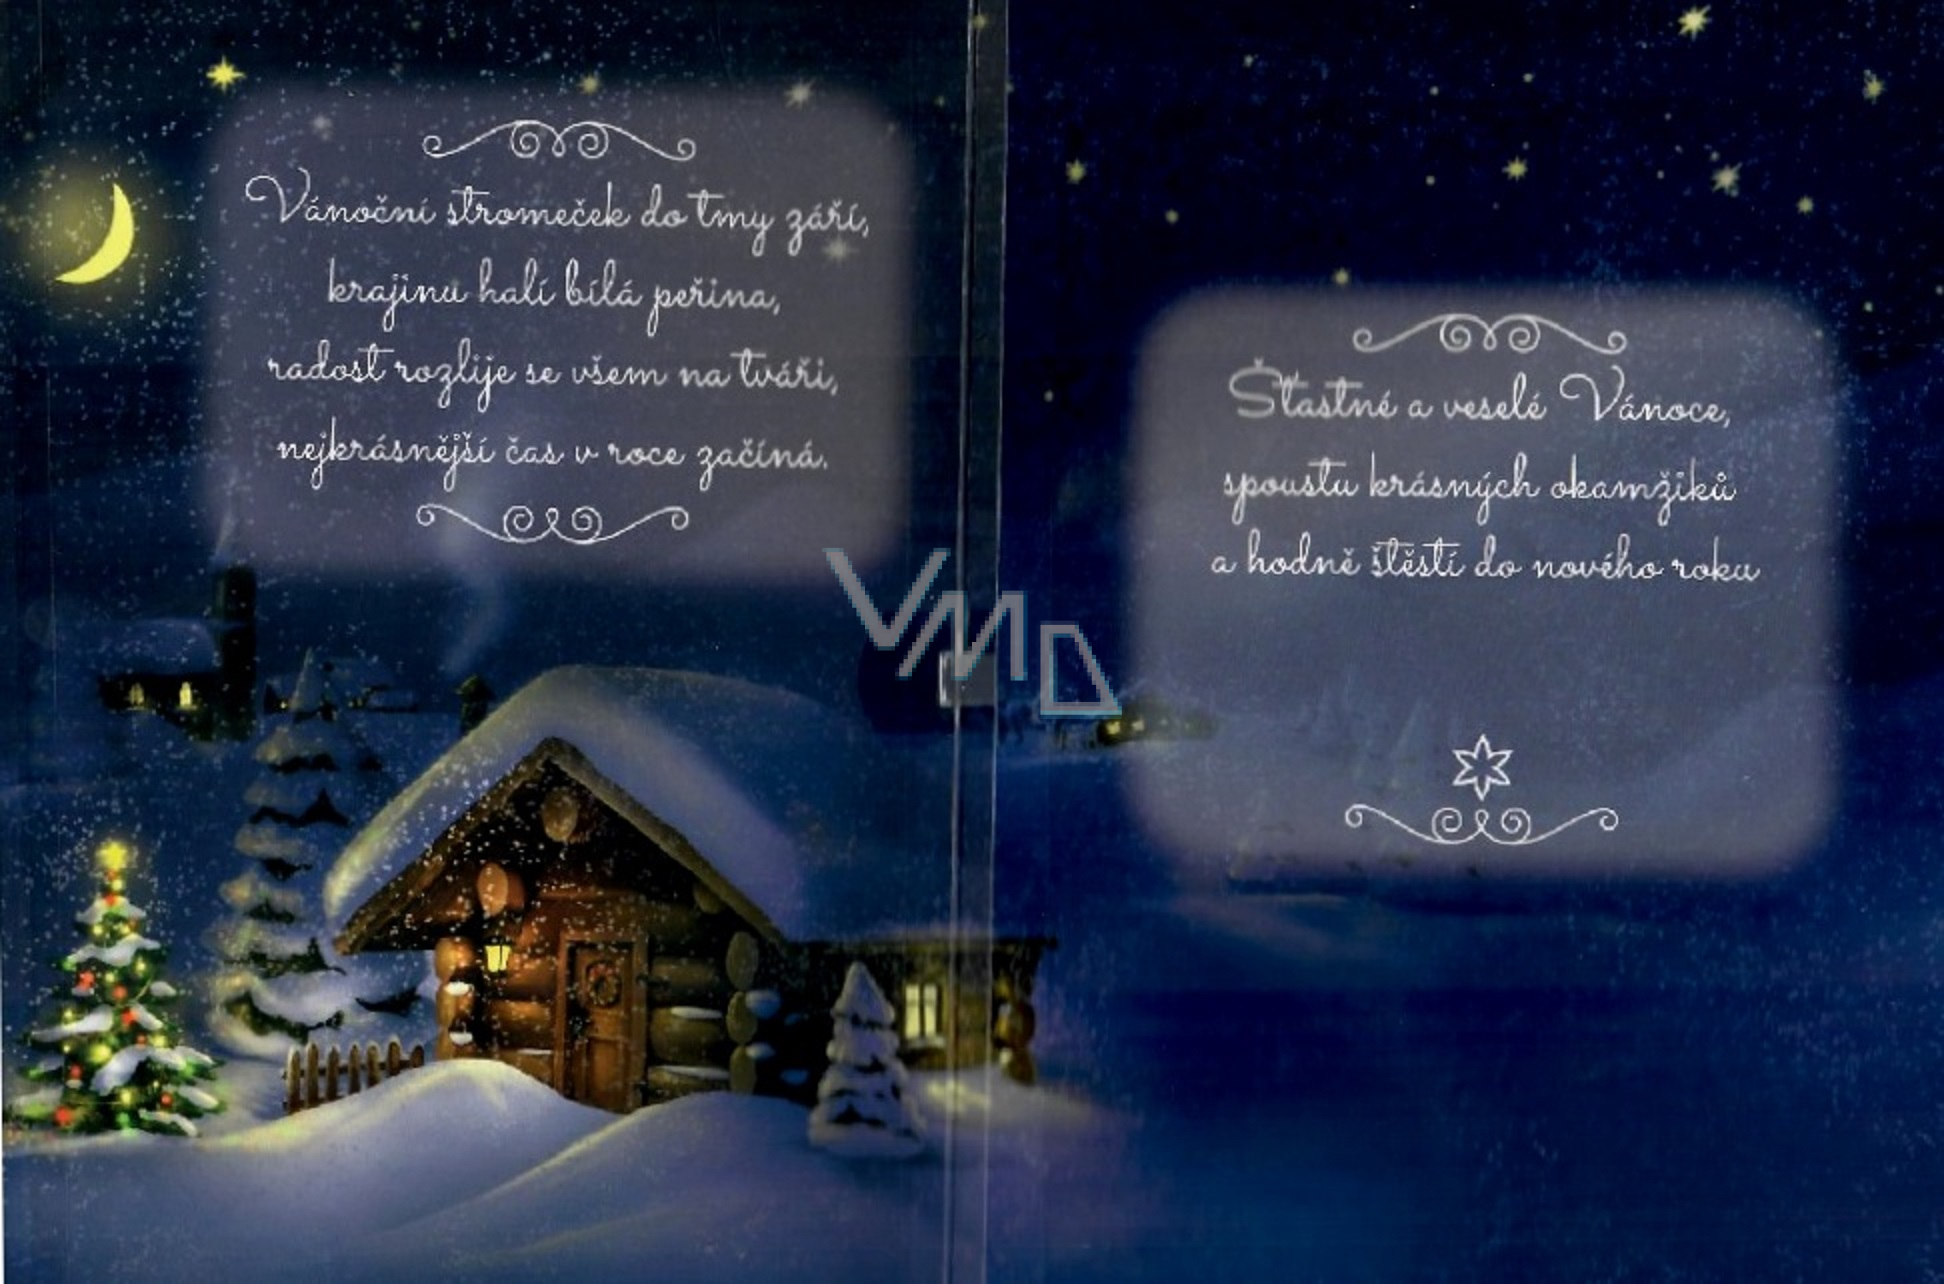 Vánoční stromeček do tmy září,
krajinu halí bílá peřina,
radost rozlije se všem na tváři,
nejkrásnější čas v roce začíná.
VMD
Šťastné a veselé Vánoce,
spoustu krásných okamžiků
a hodně štěstí do nového roku